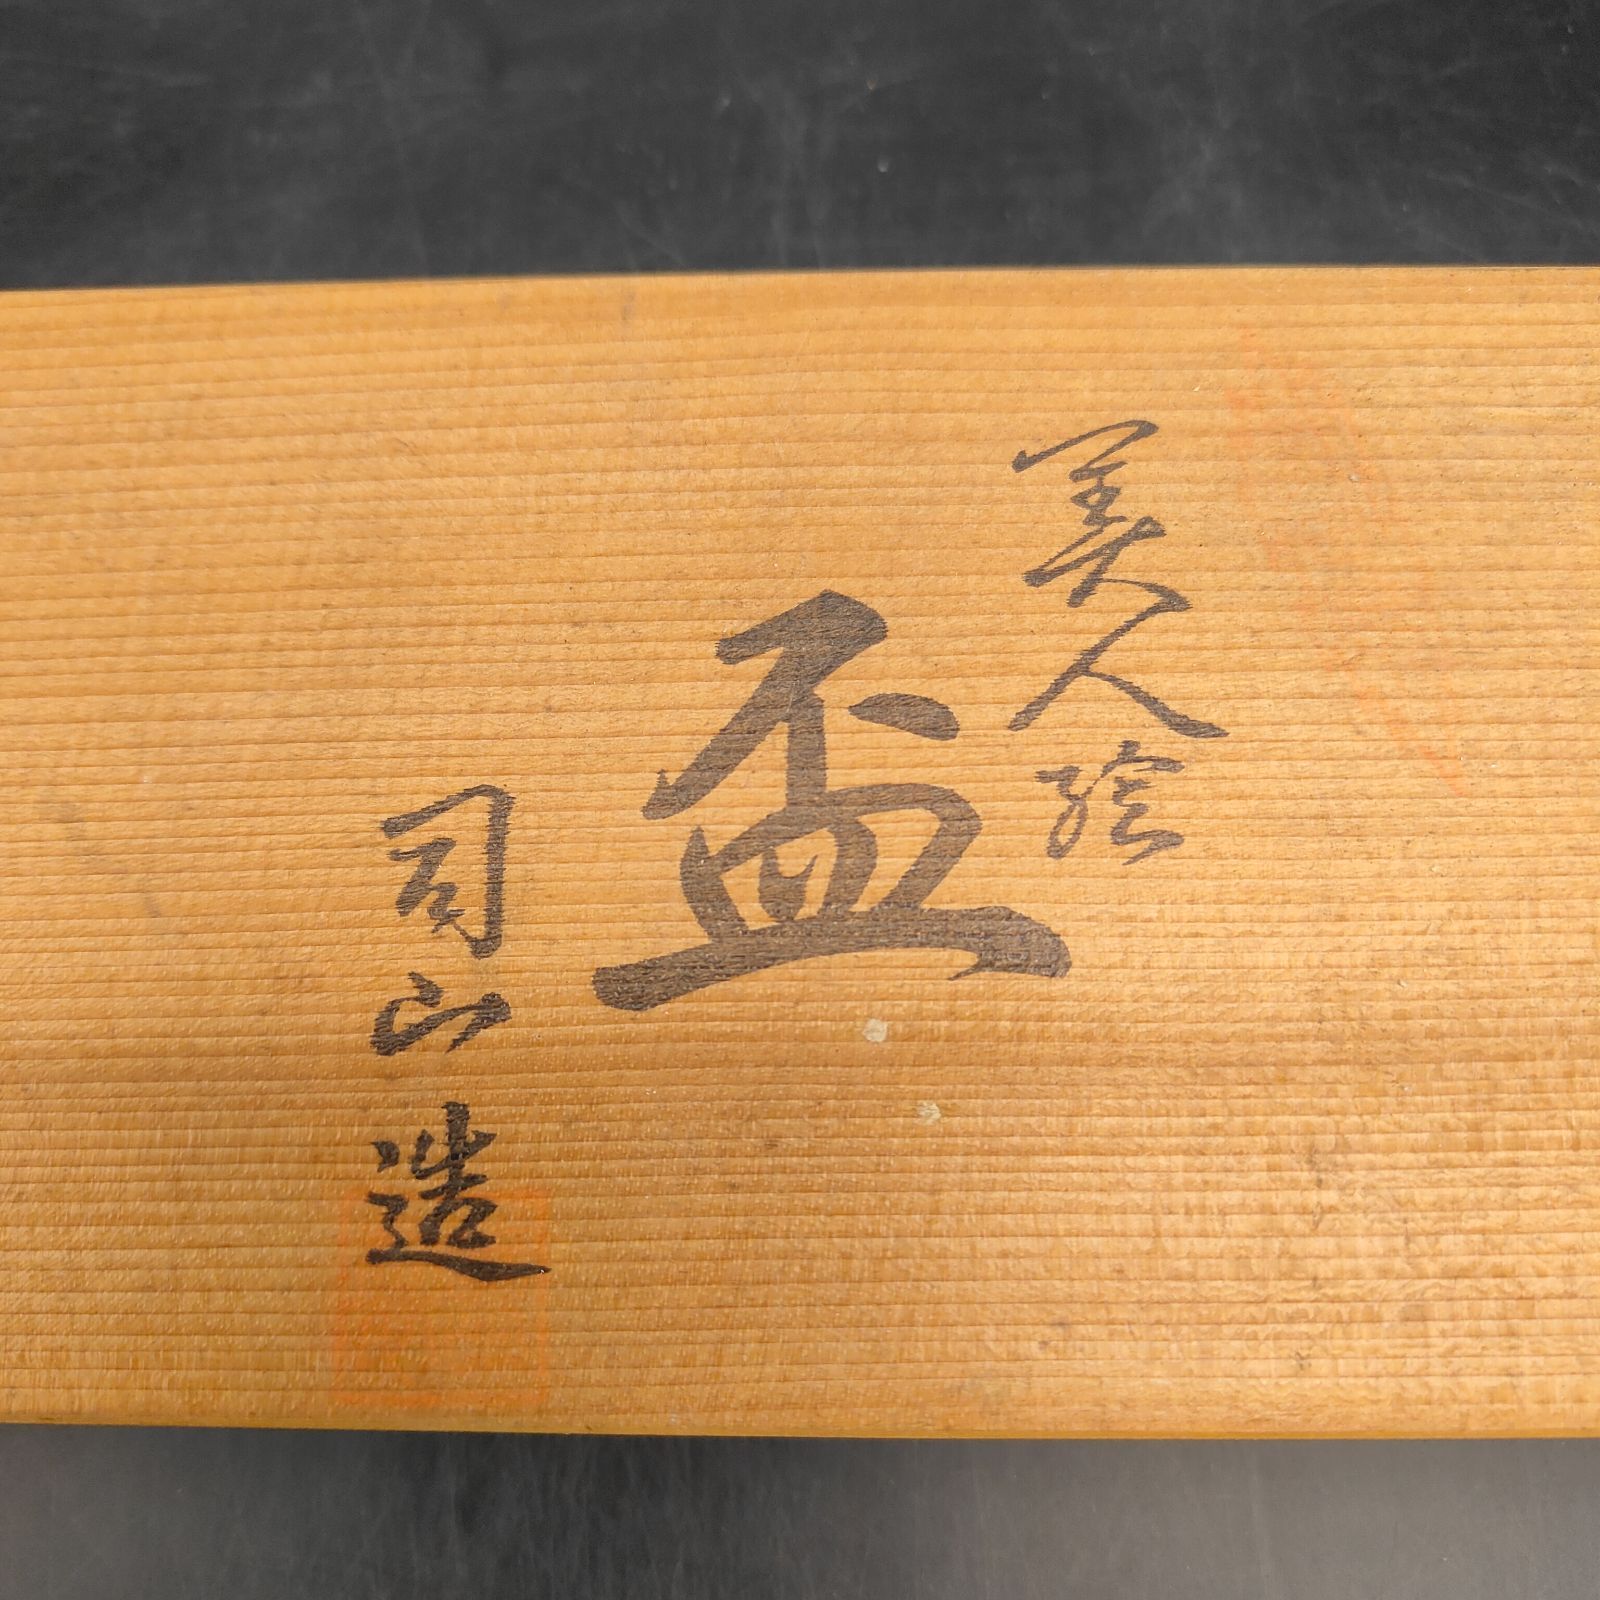 美人絵
盃
司山造